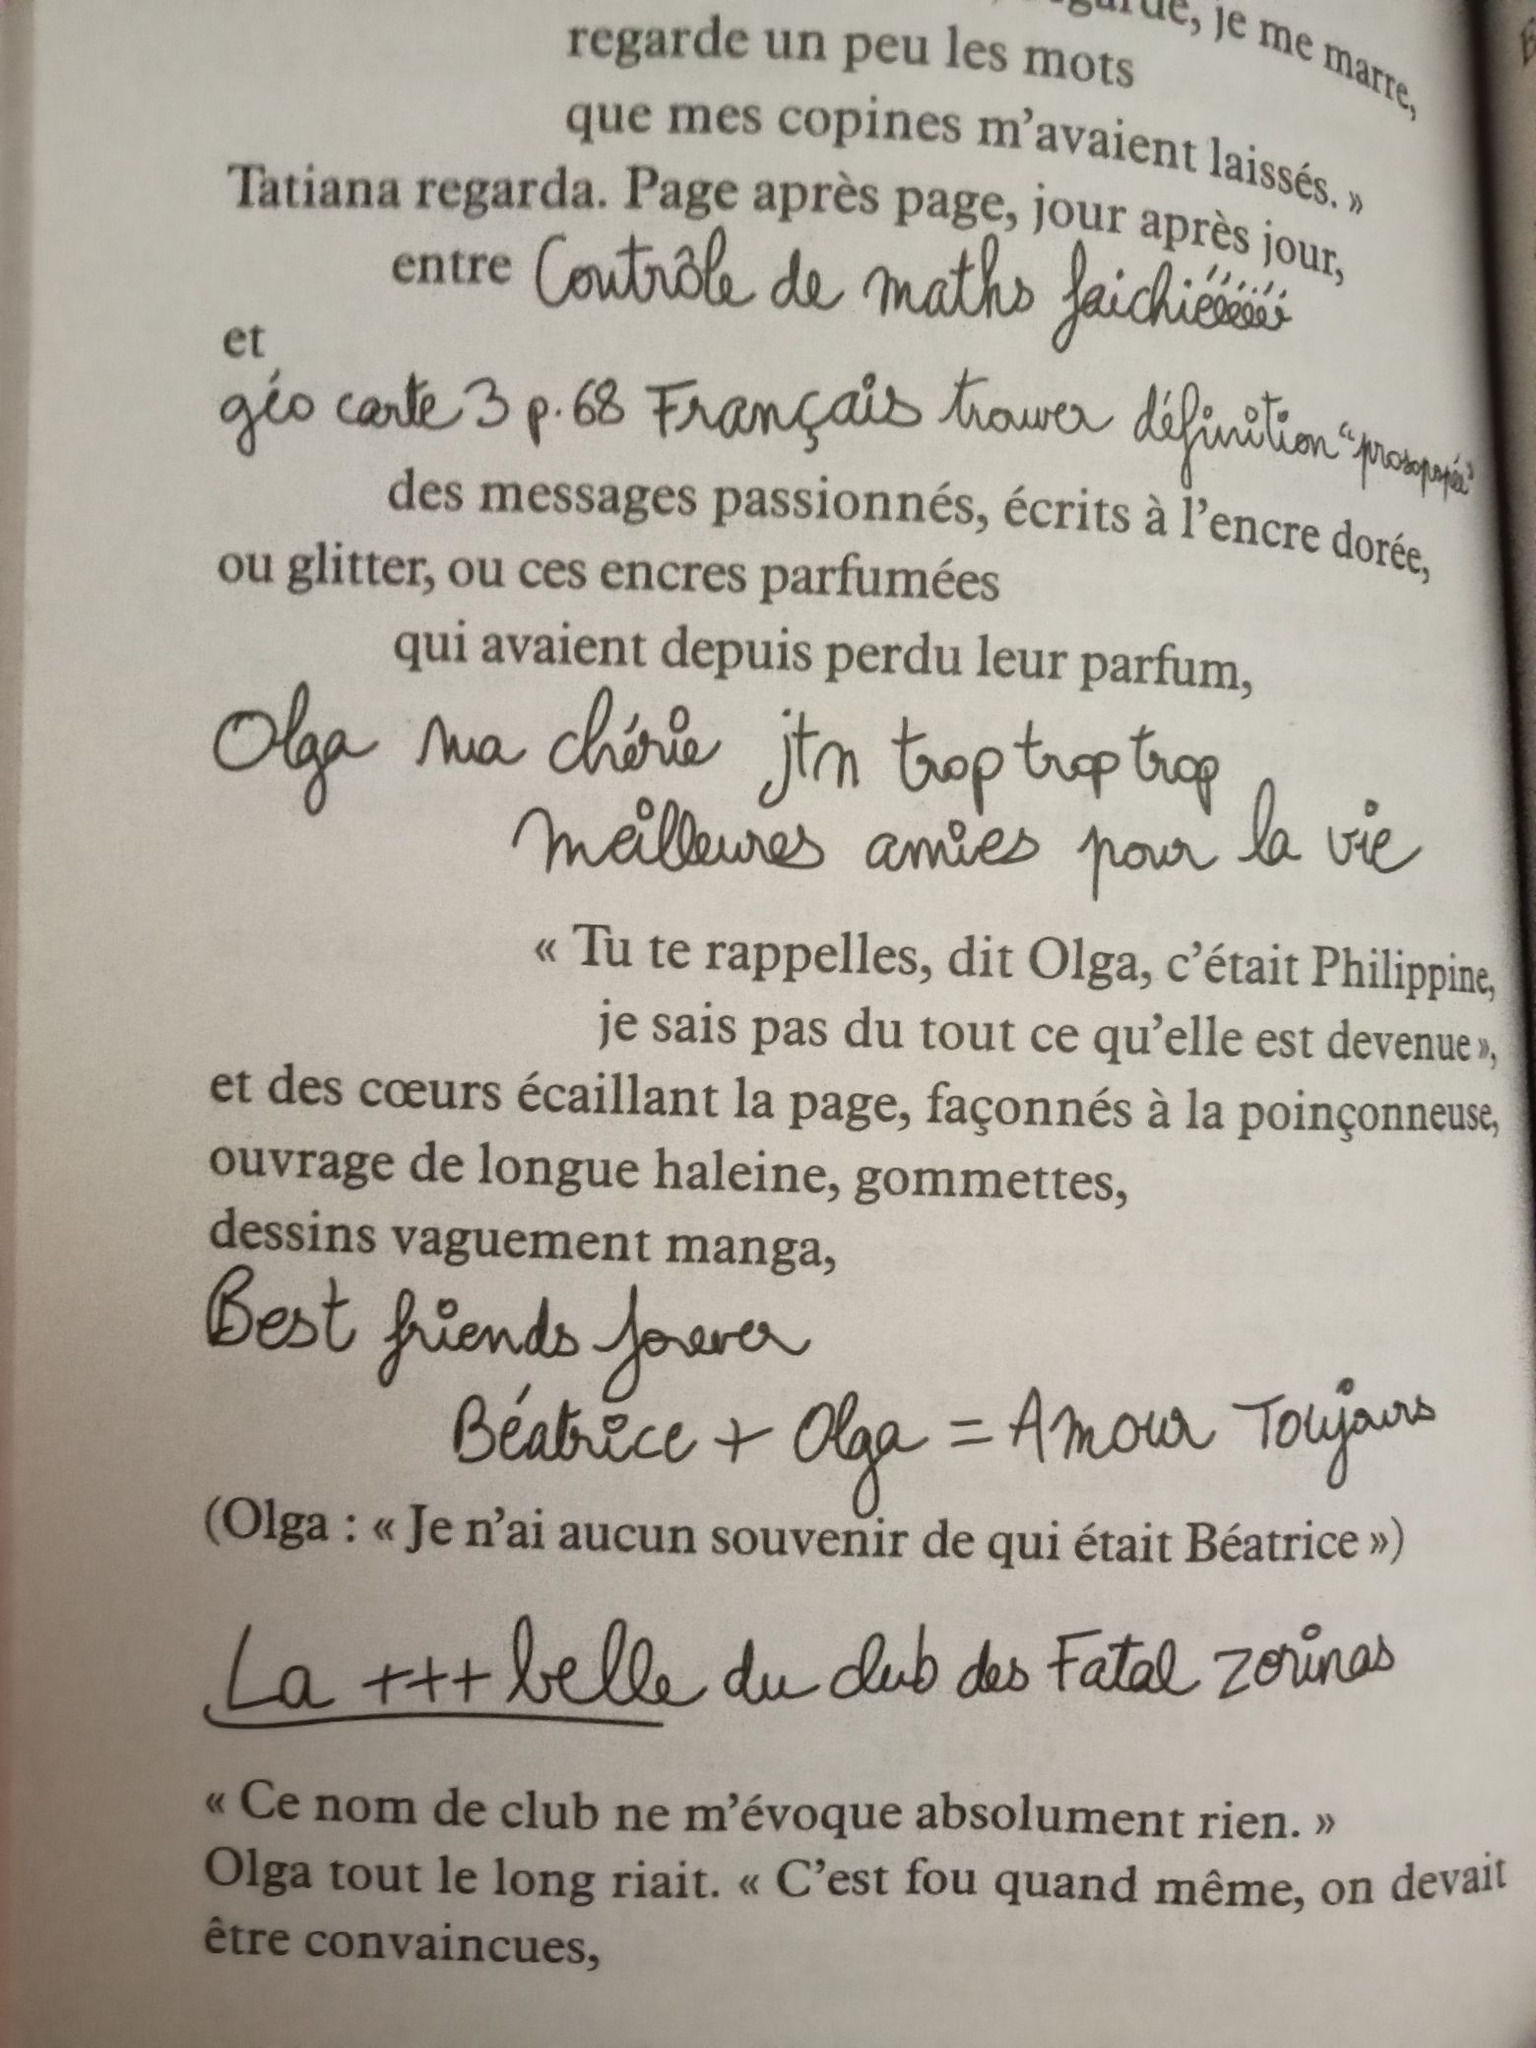 je me marre,
regarde un peu les mots
que mes copines m'avaient laissés. »
Tatiana regarda. Page après page, jour après jour,
entre Contrôle de maths faichiéééééé
et
géo carte 3 p. 68 Français trouver définition "prosopopée"
des messages passionnés, écrits à l'encre dorée,
ou glitter, ou ces encres parfumées
qui avaient depuis perdu leur parfum,
Olga ma chérie jtm trop trop trop
meilleures amies pour la vie
« Tu te rappelles, dit Olga, c'était Philippine,
je sais pas du tout ce qu'elle est devenue »,
et des cœurs écaillant la page, façonnés à la poinçonneuse,
ouvrage de longue haleine, gommettes,
dessins vaguement manga,
Best friends forever
Béatrice + Olga = Amour Toujours
(Olga : « Je n'ai aucun souvenir de qui était Béatrice »)
La +++ belle du club des Fatal Zorinas
« Ce nom de club ne m'évoque absolument rien. »
Olga tout le long riait. « C'est fou quand même, on devait
être convaincues,